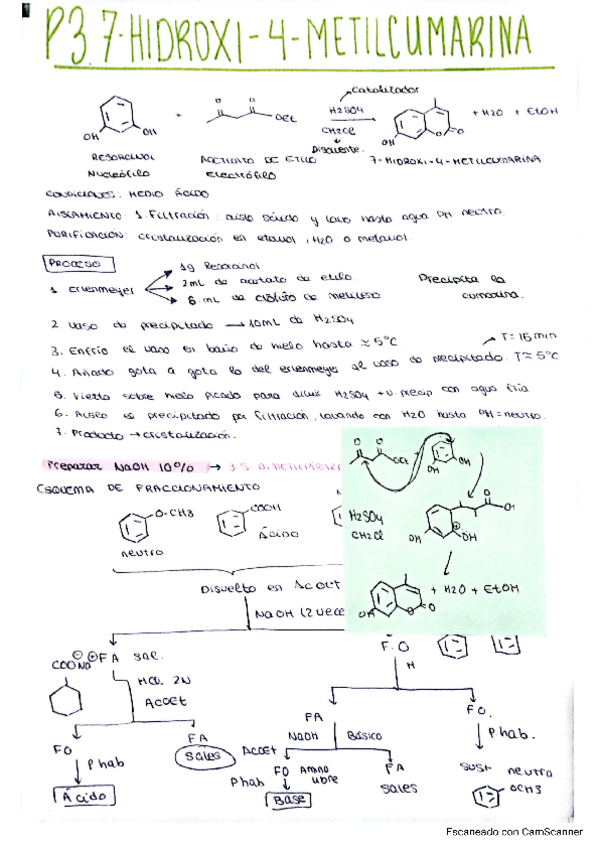 P3.7-HIDROXI-4-METILCUMARINA
OH OH + O O OEt H2SO4 CH2Cl Catalizador Disolvente. OH O O + H2O + EtOH
RESORCINOL ACETATO DE ETILO 7-HIDROXI-4-METILCUMARINA
NUCLEÓFILO ELECTRÓFILO
CONDICIONES: MEDIO ÁCIDO
AISLAMIENTO: 1. Filtración: aislo sólido y lavo hasta agua pH neutro.
PURIFICACIÓN: cristalización en etanol, H2O o metanol.
PROCESO
1. Erlenmeyer
1g Resorcinol
2mL de acetato de etilo.
6 mL de
Precipita la cumarina.
2. Vaso de precipitado → 10mL de H2SO4
3. Enfrío el vaso en baño de hielo hasta ≈ 5ºC
T = 15 min
4. Añado gota a gota lo del erlenmeyer al vaso de precipitado. T ≈ 5ºC
5. Vierto sobre hielo picado para diluir H2SO4 + v. precip con agua fría
6. Aíslo el precipitado por filtración, lavando con H2O hasta pH = neutro.
7. Producto → cristalización.
Preparar NaOH 10%
ESQUEMA DE FRACCIONAMIENTO
O-CH3
neutro
COOH
Ácido
O O OEt OH OH
H2SO4
CH2Cl
OH OH
OH O O + H2O + EtOH
Disuelto en AcOEt
NaOH (2 vece
COO⊖ Na⊕ FA sal.
HCl 2N
AcOEt
FO
Phab
Ácido
FA
sales
F.O
H
FA
NaOH Básico
AcOEt
FO Amina libre
Phab
Base
FA
sales
FO.
Phab.
sust neutra
OCH3
Escaneado con CamScanner